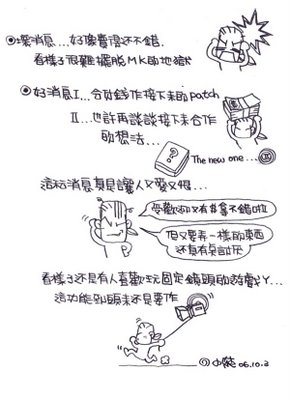 ◉壞消息...好像賣得還不錯.
看樣子很難擺脫MK的地獄
◉好消息I...令有錢作接下來的patch
II...也許再談談接下來合作
的想法...
?
The new one...
這種消息真是讓人又愛又恨...
受歡迎又有錢拿不錯啦
但又要弄一樣的東西
還真有臭說ㄋ
看樣子還是有人喜歡玩固定鏡頭的遊戲ㄚ...
這功能到頭來還是要作
06.10.3